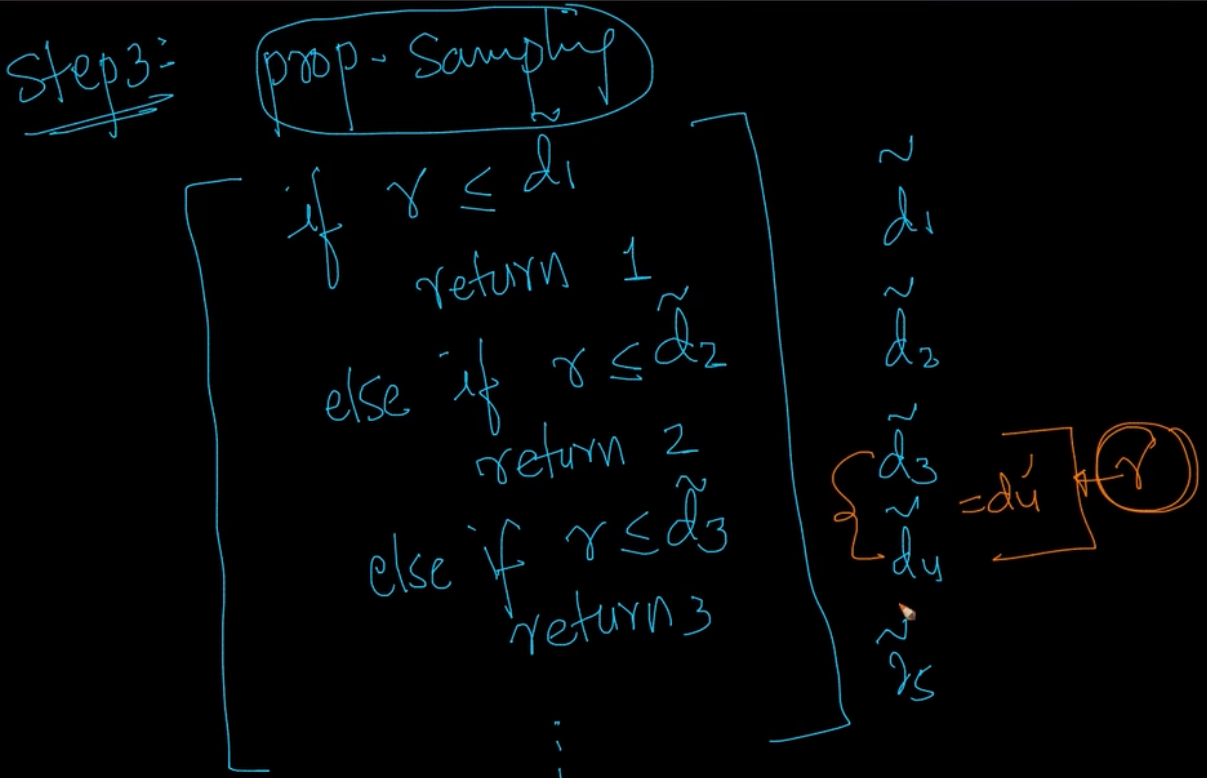 Step3:
prop. Sampling
if r ≤ d̃1
return 1
else if r ≤ d̃2
return 2
else if r ≤ d̃3
return 3
d̃1
d̃2
d̃3
= d4'
r
d̃4
d̃5